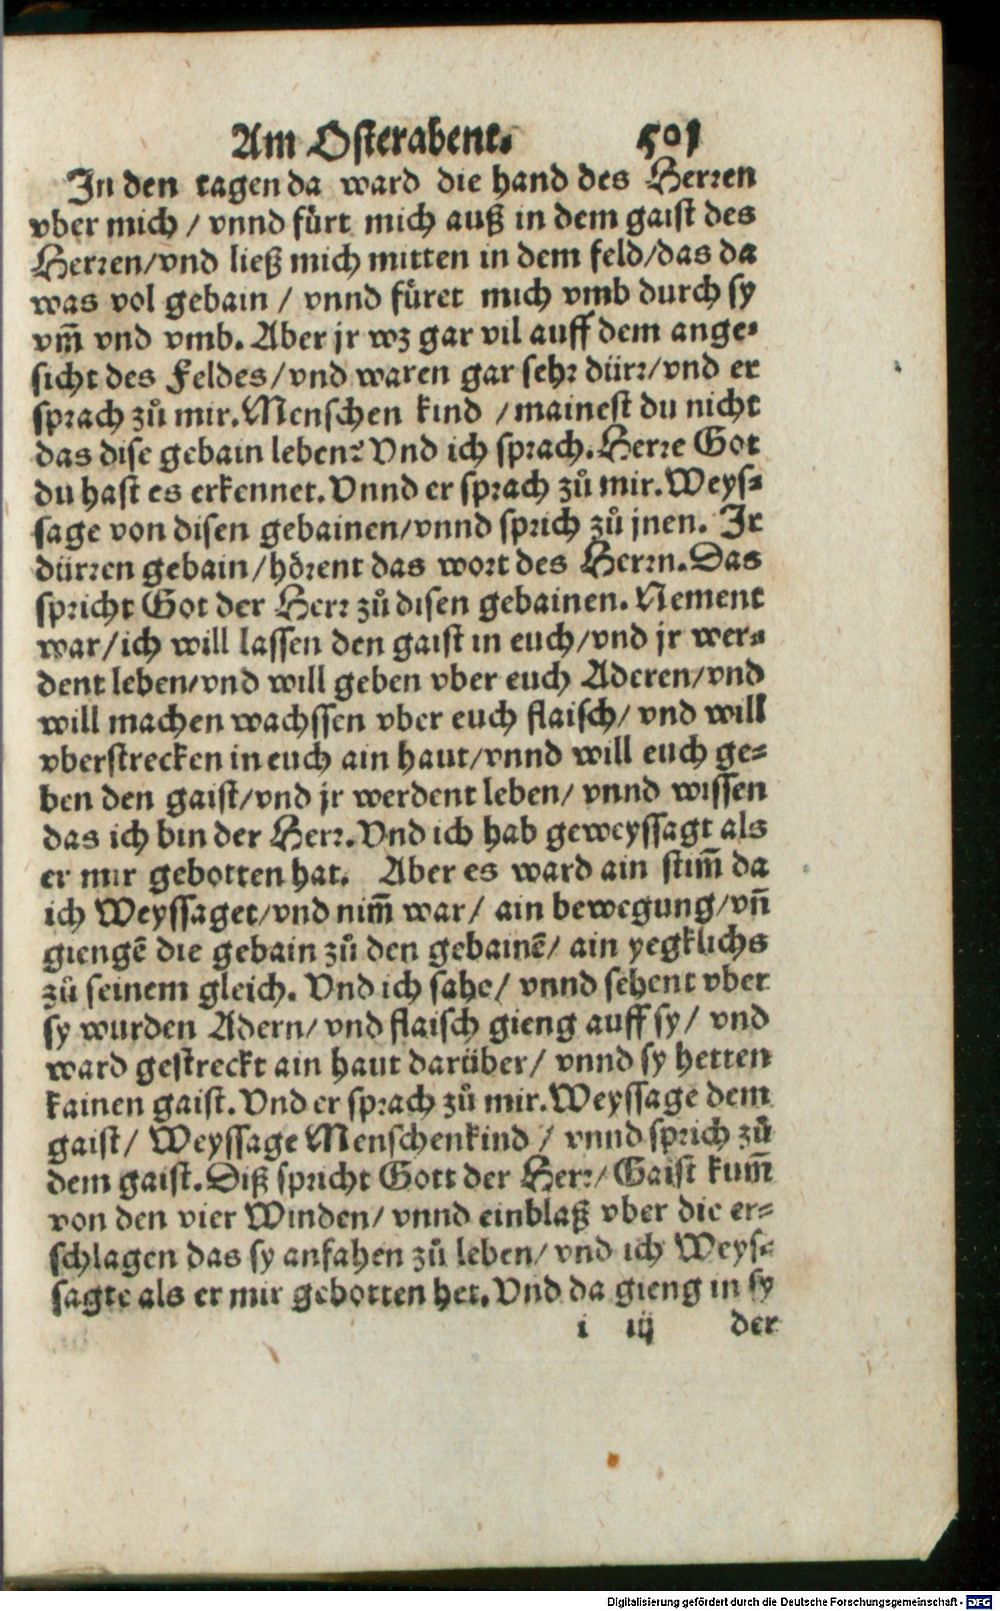 Am Osterabent. 501
In den tagen da ward die hand des Herren
vber mich / vnnd fürt mich auß in dem gaist des
Herren/vnd ließ mich mitten in dem feld/das da
was vol gebain / vnnd füret mich vmb durch sy
vm̃ vnd vmb. Aber jr wz gar vil auff dem ange-
sicht des Feldes/vnd waren gar sehr dürr/vnd er
sprach zů mir. Menschen kind /mainest du nicht
das dise gebain leben? Vnd ich sprach. Herre Got
du hast es erkennet. Vnnd er sprach zů mir. Weys-
sage von disen gebainen/vnnd sprich zů jnen. Ir
dürren gebain/hörent das wort des Herrn. Das
spricht Got der Herr zů disen gebainen. Nement
war/ich will lassen den gaist in euch/vnd jr wer-
dent leben/vnd will geben vber euch Aderen/vnd
will machen wachssen vber euch flaisch/ vnd will
vberstrecken in euch ain haut/vnnd will euch ge-
ben den gaist/vnd jr werdent leben/ vnnd wissen
das ich bin der Herr. Vnd ich hab geweyssagt als
er mir gebotten hat. Aber es ward ain stim̃ da
ich Weyssaget/vnd nim̃ war/ ain bewegung/vñ
giengẽ die gebain zů den gebainẽ/ ain yegklichs
zů seinem gleich. Vnd ich sahe/ vnnd sehent vber
sy wurden Adern/ vnd flaisch gieng auff sy/ vnd
ward gestreckt ain haut darüber/ vnnd sy hetten
kainen gaist. Vnd er sprach zů mir. Weyssage dem
gaist/ Weyssage Menschenkind / vnnd sprich zů
dem gaist. Diß spricht Gott der Herr/ Gaist kum̃
von den vier Winden/ vnnd einblaß vber die er-
schlagen das sy anfahen zů leben/ vnd ich Weys-
sagte als er mir gebotten het. Vnd da gieng in sy
i iij der
Digitalisierung gefördert durch die Deutsche Forschungsgemeinschaft - DFG